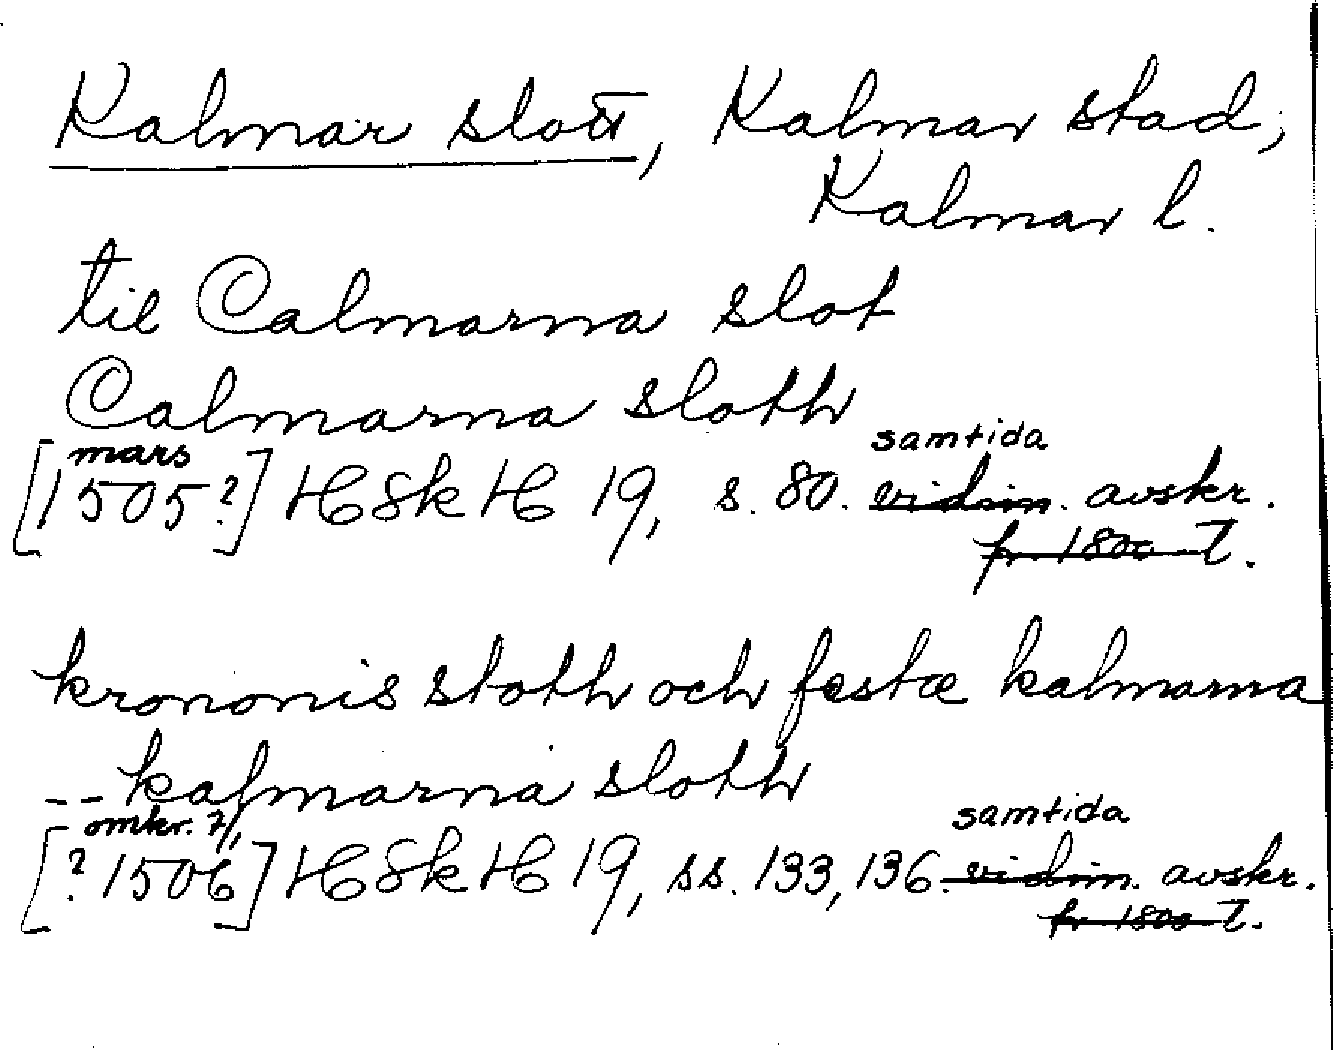 Kalmar slott, Kalmar stad,
Kalmar l.
til Calmarna slot
Calmarna sloth
[mars 1505?] HSkH 19, s. 80. samtida vidim. avskr.
fr 1800-t.
krononis sloth och festæ kalmarna
-- kalmarna sloth
[omkr. 7/1 ? 1506] HSkH 19, ss. 133, 136. samtida vidim. avskr.
fr 1800-t.